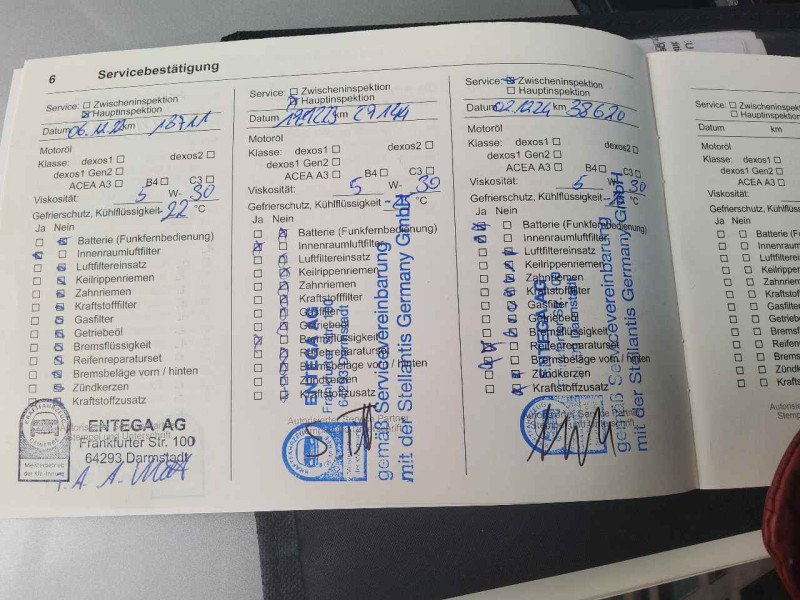 6 Servicebestätigung
Service: Zwischeninspektion
Hauptinspektion
Datum 06.12.22 km 18711
Motoröl
Klasse: dexos1 dexos2
dexos1 Gen2
ACEA A3 B4 C3
Viskosität: 5 W- 30
Gefrierschutz, Kühlflüssigkeit -22 °C
Ja Nein
Batterie (Funkfernbedienung)
Innenraumluftfilter
Luftfiltereinsatz
Keilrippenriemen
Zahnriemen
Kraftstofffilter
Gasfilter
Getriebeöl
Bremsflüssigkeit
Reifenreparaturset
Bremsbeläge vorn / hinten
Zündkerzen
Kraftstoffzusatz
Stempel und Unterschrift
ENTEGA AG
Frankfurter Str. 100
64293 Darmstadt
Meisterbetrieb
der Kfz-Innung
Service: Zwischeninspektion
Hauptinspektion
Datum km 29144
Motoröl
Klasse: dexos1 dexos2
dexos1 Gen2
ACEA A3 B4 C3
Viskosität: 5 W- 30
Gefrierschutz, Kühlflüssigkeit °C
Ja Nein
Batterie (Funkfernbedienung)
Innenraumluftfilter
Luftfiltereinsatz
Keilrippenriemen
Zahnriemen
Kraftstofffilter
Gasfilter
Getriebeöl
Bremsflüssigkeit
Reifenreparaturset
Bremsbeläge vorn / hinten
Zündkerzen
Kraftstoffzusatz
ENTEGA AG
64293 Darmstadt
gemäß Servicevereinbarung
mit der Stellantis Germany GmbH
Service: Zwischeninspektion
Hauptinspektion
Datum 02.12.24 km 38620
Motoröl
Klasse: dexos1 dexos2
dexos1 Gen2
ACEA A3 B4 C3
Viskosität: 5 W- 30
Gefrierschutz, Kühlflüssigkeit °C
Ja Nein
Batterie (Funkfernbedienung)
Innenraumluftfilter
Luftfiltereinsatz
Keilrippenriemen
Zahnriemen
Kraftstofffilter
Gasfilter
Getriebeöl
Bremsflüssigkeit
Reifenreparaturset
Bremsbeläge vorn / hinten
Zündkerzen
Kraftstoffzusatz
ENTEGA AG
gemäß Servicevereinbarung
mit der Stellantis Germany GmbH
Service: Zwischeninspektion
Hauptinspektion
Datum km
Motoröl
Klasse: dexos1
dexos1 Gen2
ACEA A3
Viskosität:
Gefrierschutz, Kühlflüssigkeit
Ja Nein
Batterie
Innenraum